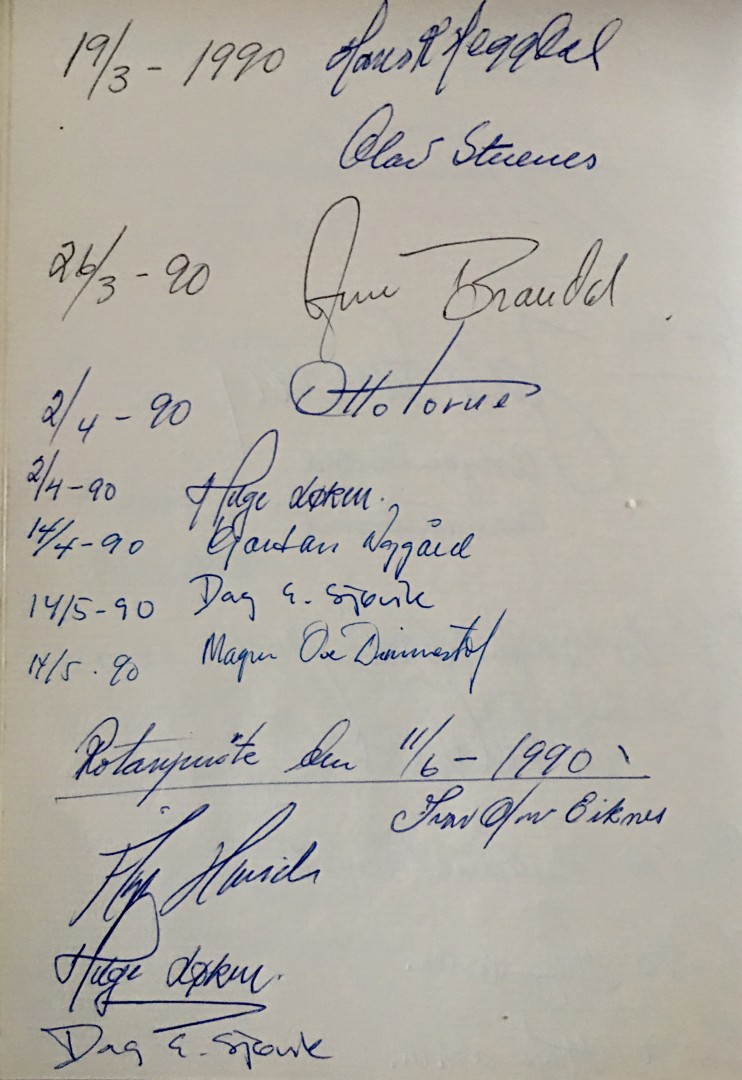 19/3 - 1990 Hans R Heggdal
Olav Stuenes
26/3 - 90 Arne Brandal
2/4 - 90 Otto Tornes
2/4-90 Helge Løken.
14/4-90 Nygård
14/5-90 Dag E. Sjøvik
14/5. 90 Magne Ove Dimmestøl
Rotarymøte den 11/6 - 1990
Eiknes
Helge Løken.
Dag E. Sjøvik